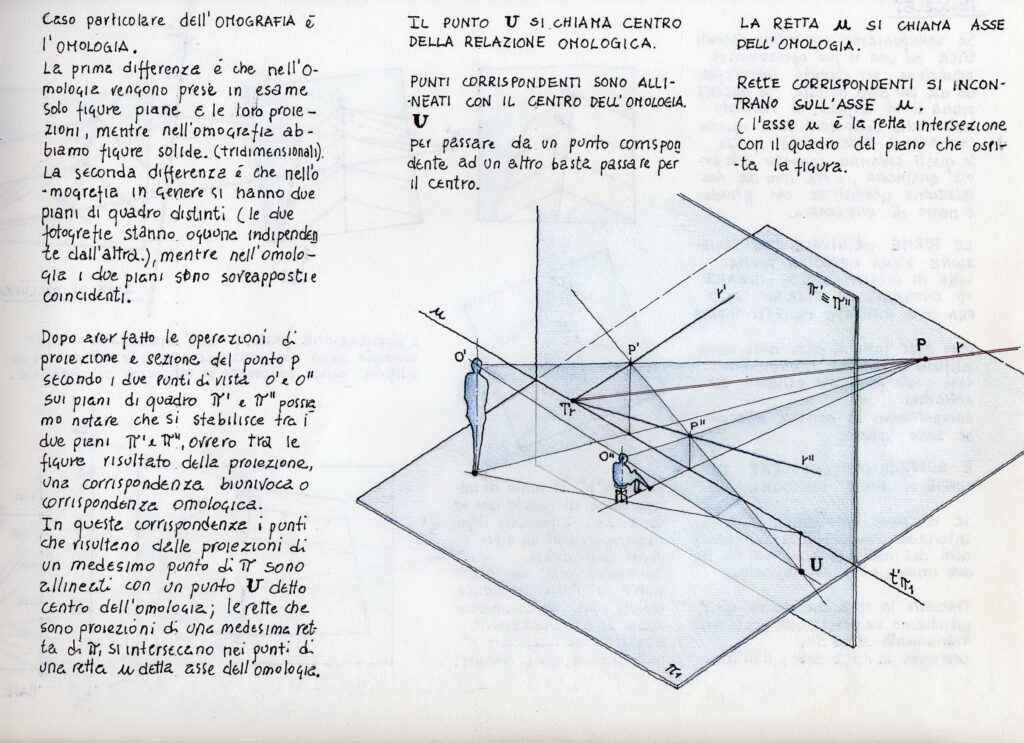 Caso particolare dell'OMOGRAFIA è
l'OMOLOGIA.
La prima differenza é che nell'O-
mologia vengono prese in esame
solo figure piane e le loro proie-
zioni, mentre nell'omografia ab-
biamo figure solide. (tridimensionali).
La seconda differenza é che nell'o
-mografia in genere si hanno due
piani di quadro distinti (le due
fotografie stanno ognuna indipenden
te dall'altra.), mentre nell'omolo-
gia i due piani sono sovrapposti e
coincidenti.
Dopo aver fatto le operazioni di
proiezione e sezione, del punto P
secondo i due punti di vista O' e O"
sui piani di quadro π' e π" possia
mo notare che si stabilisce tra i
due piani π' e π", ovvero tra le
figure risultato della proiezione,
una corrispondenza biunivoca o
corrispondenza omologica.
In queste corrispondenze i punti
che risultano dalle proiezioni di
un medesimo punto di π sono
allineati con un punto U detto
centro dell'omologia; le rette che
sono proiezioni di una medesima ret
ta di π, si intersecano nei punti di
una retta u detta asse dell'omologia.
IL PUNTO U SI CHIAMA CENTRO
DELLA RELAZIONE OMOLOGICA.
PUNTI CORRISPONDENTI SONO ALLI-
-NEATI CON IL CENTRO DELL'OMOLOGIA.
U
per passare da un punto corrispon
dente ad un altro basta passare per
il centro.
LA RETTA u SI CHIAMA ASSE
DELL'OMOLOGIA.
RETTE CORRISPONDENTI SI INCON-
TRANO SULL'ASSE u.
(l'asse u è la retta intersezione
con il quadro del piano che ospi-
ta la figura.
π' ≡ π"
r'
u
O'
P'
P
r
Tr
P"
O"
r"
U
t'π1
π1